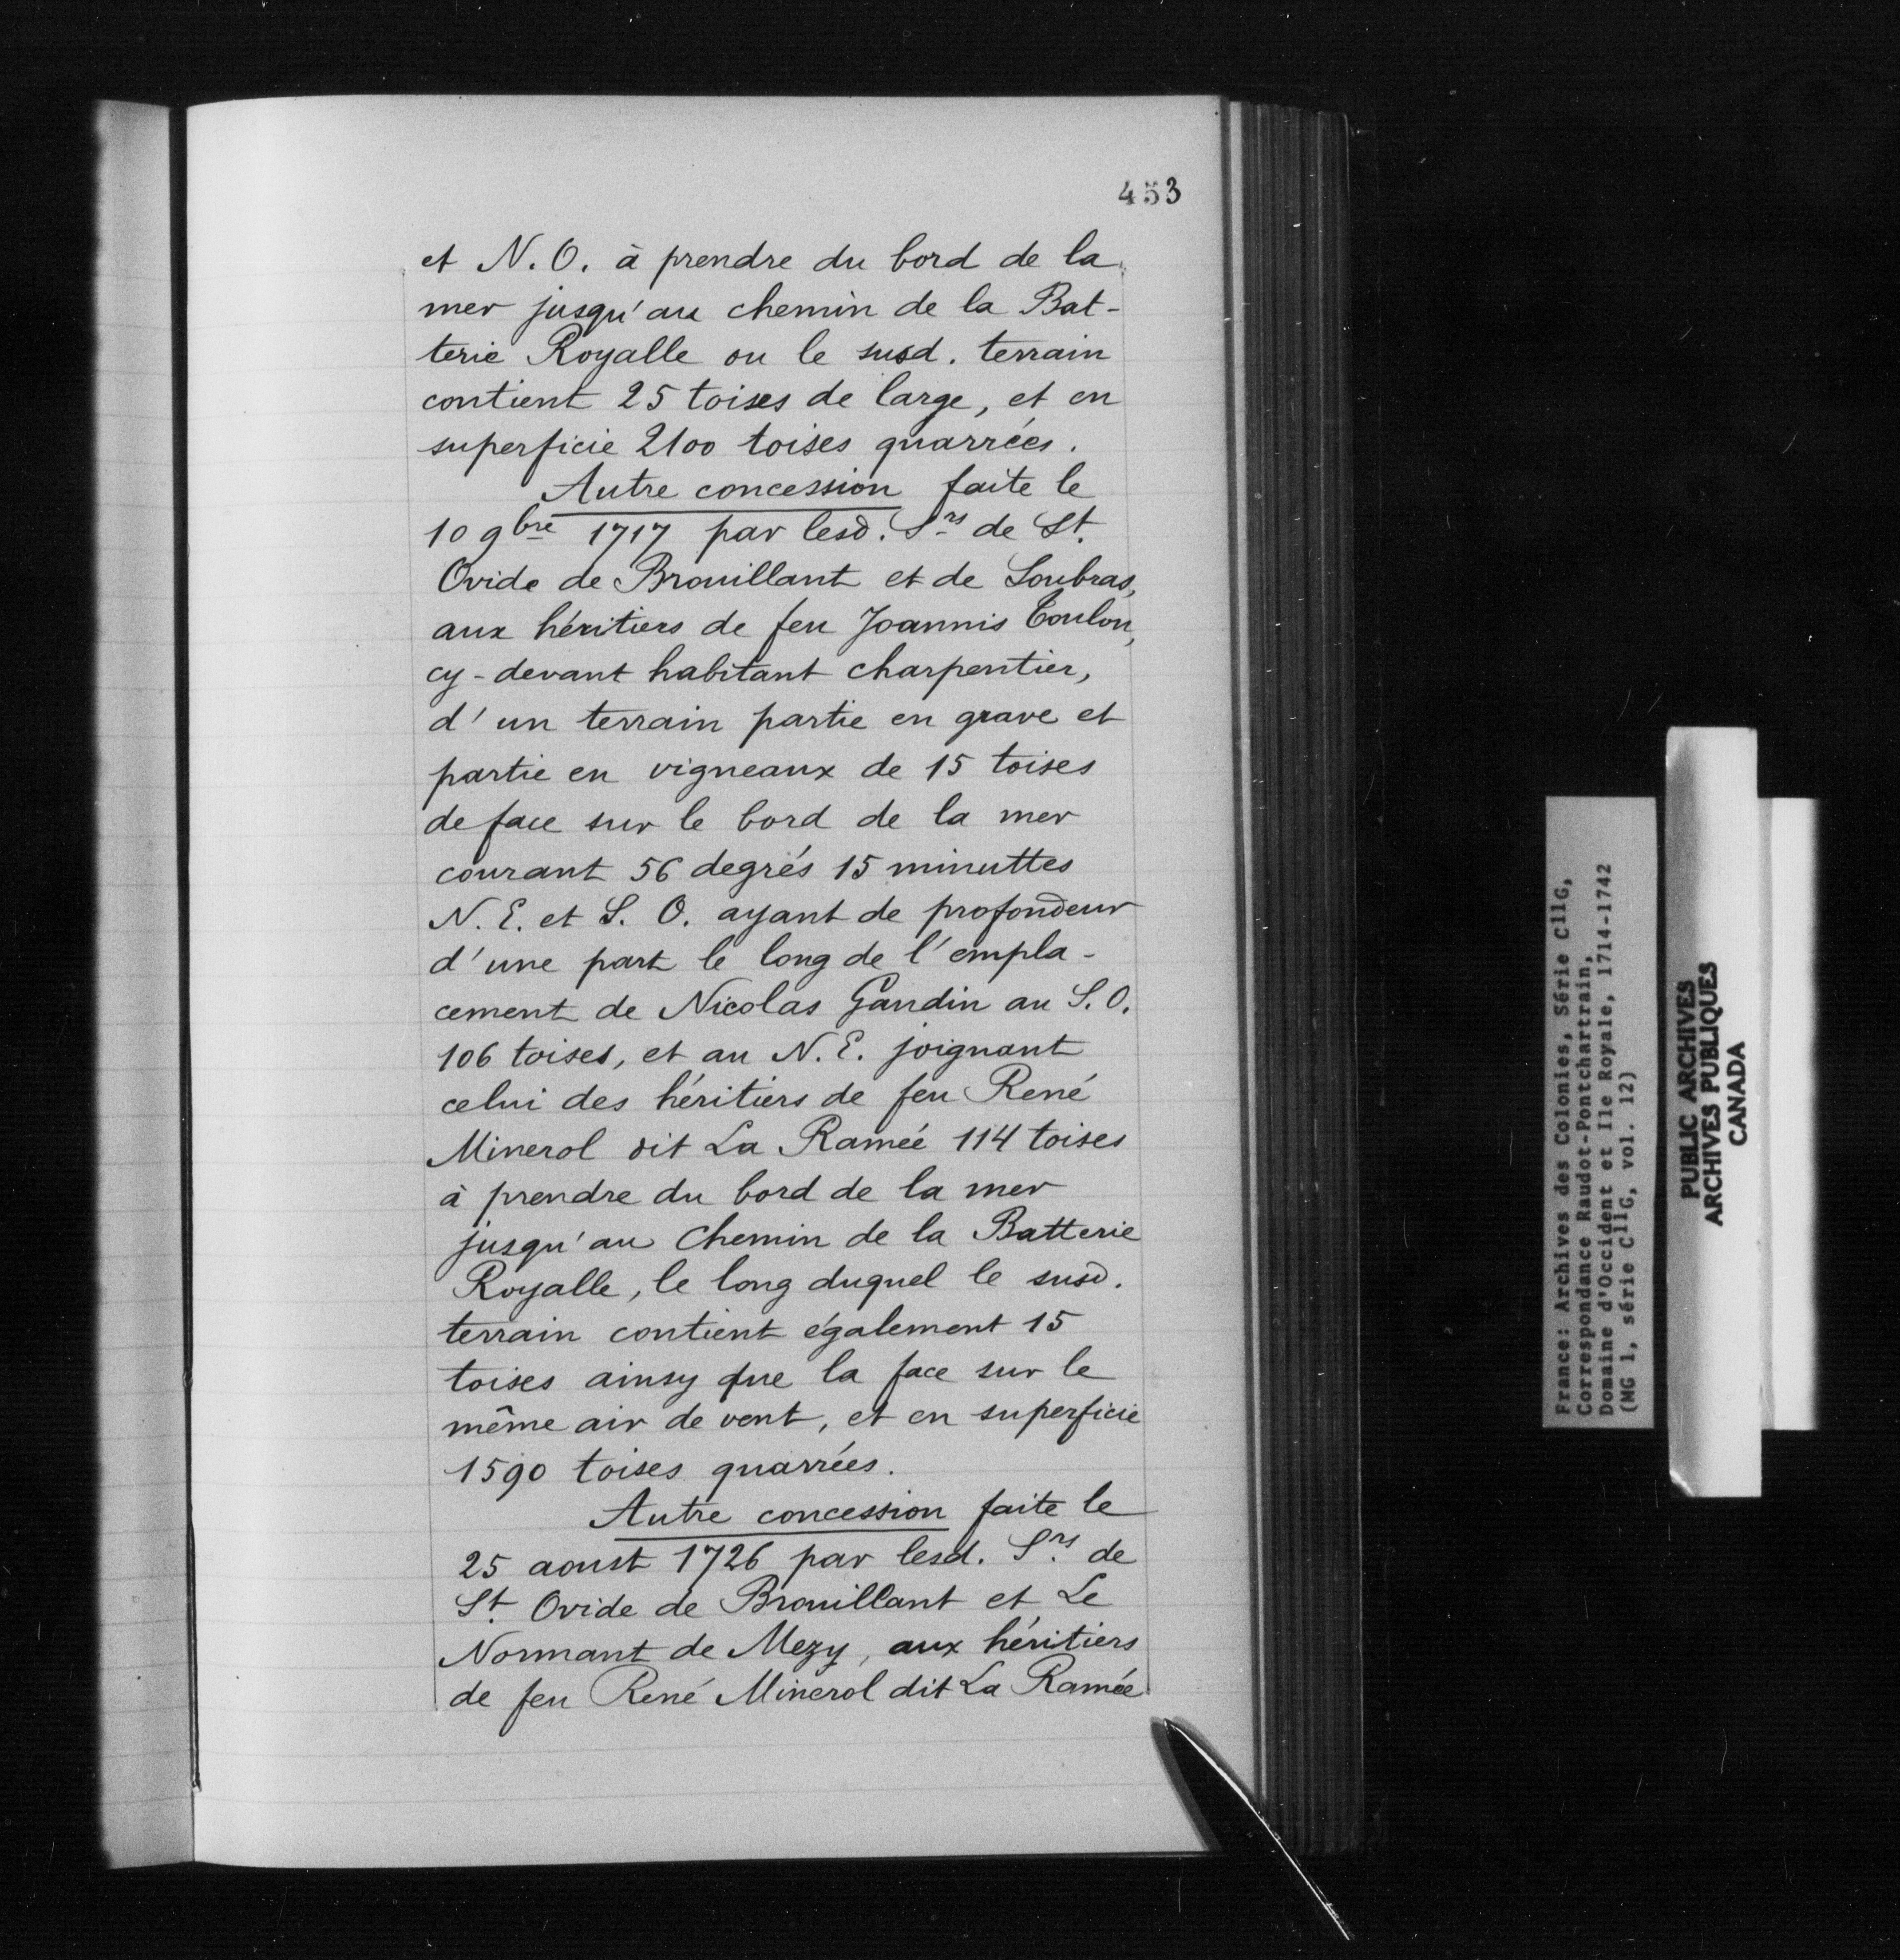 453
et N. O. à prendre du bord de la
mer jusqu'au chemin de la Bat-
terie Royalle ou le susd. terrain
contient 25 toises de large, et en
superficie 2100 toises quarrées.
Autre concession faite le
10 9bre 1717 par lesd. Srs de St.
Ovide de Brouillant et de Soubras,
aux héritiers de feu Joannis Toulon,
cy-devant habitant charpentier,
d'un terrain partie en grave et
partie en vigneaux de 15 toises
de face sur le bord de la mer
courant 56 degrés 15 minuttes
N. E. et S. O. ayant de profondeur
d'une part le long de l'empla-
cement de Nicolas Gandin au S. O.
106 toises, et au N. E. joignant
celui des héritiers de feu René
Minerol dit La Ramée 114 toises
à prendre du bord de la mer
jusqu'au Chemin de la Batterie
Royalle, le long duquel le susd.
terrain contient également 15
toises ainsy que la face sur le
même air de vent, et en superficie
1590 toises quarrées.
Autre concession faite le
25 aoust 1726 par lesd. Srs de
St. Ovide de Brouillant et Le
Normant de Mezy, aux héritiers
de feu René Minerol dit La Ramée
France: Archives des Colonies, Série C11G,
Correspondance Raudot-Pontchartrain,
Domaine d'Occident et Ile Royale, 1714-1742
(MG 1, série C11G, vol. 12)
PUBLIC ARCHIVES
ARCHIVES PUBLIQUES
CANADA